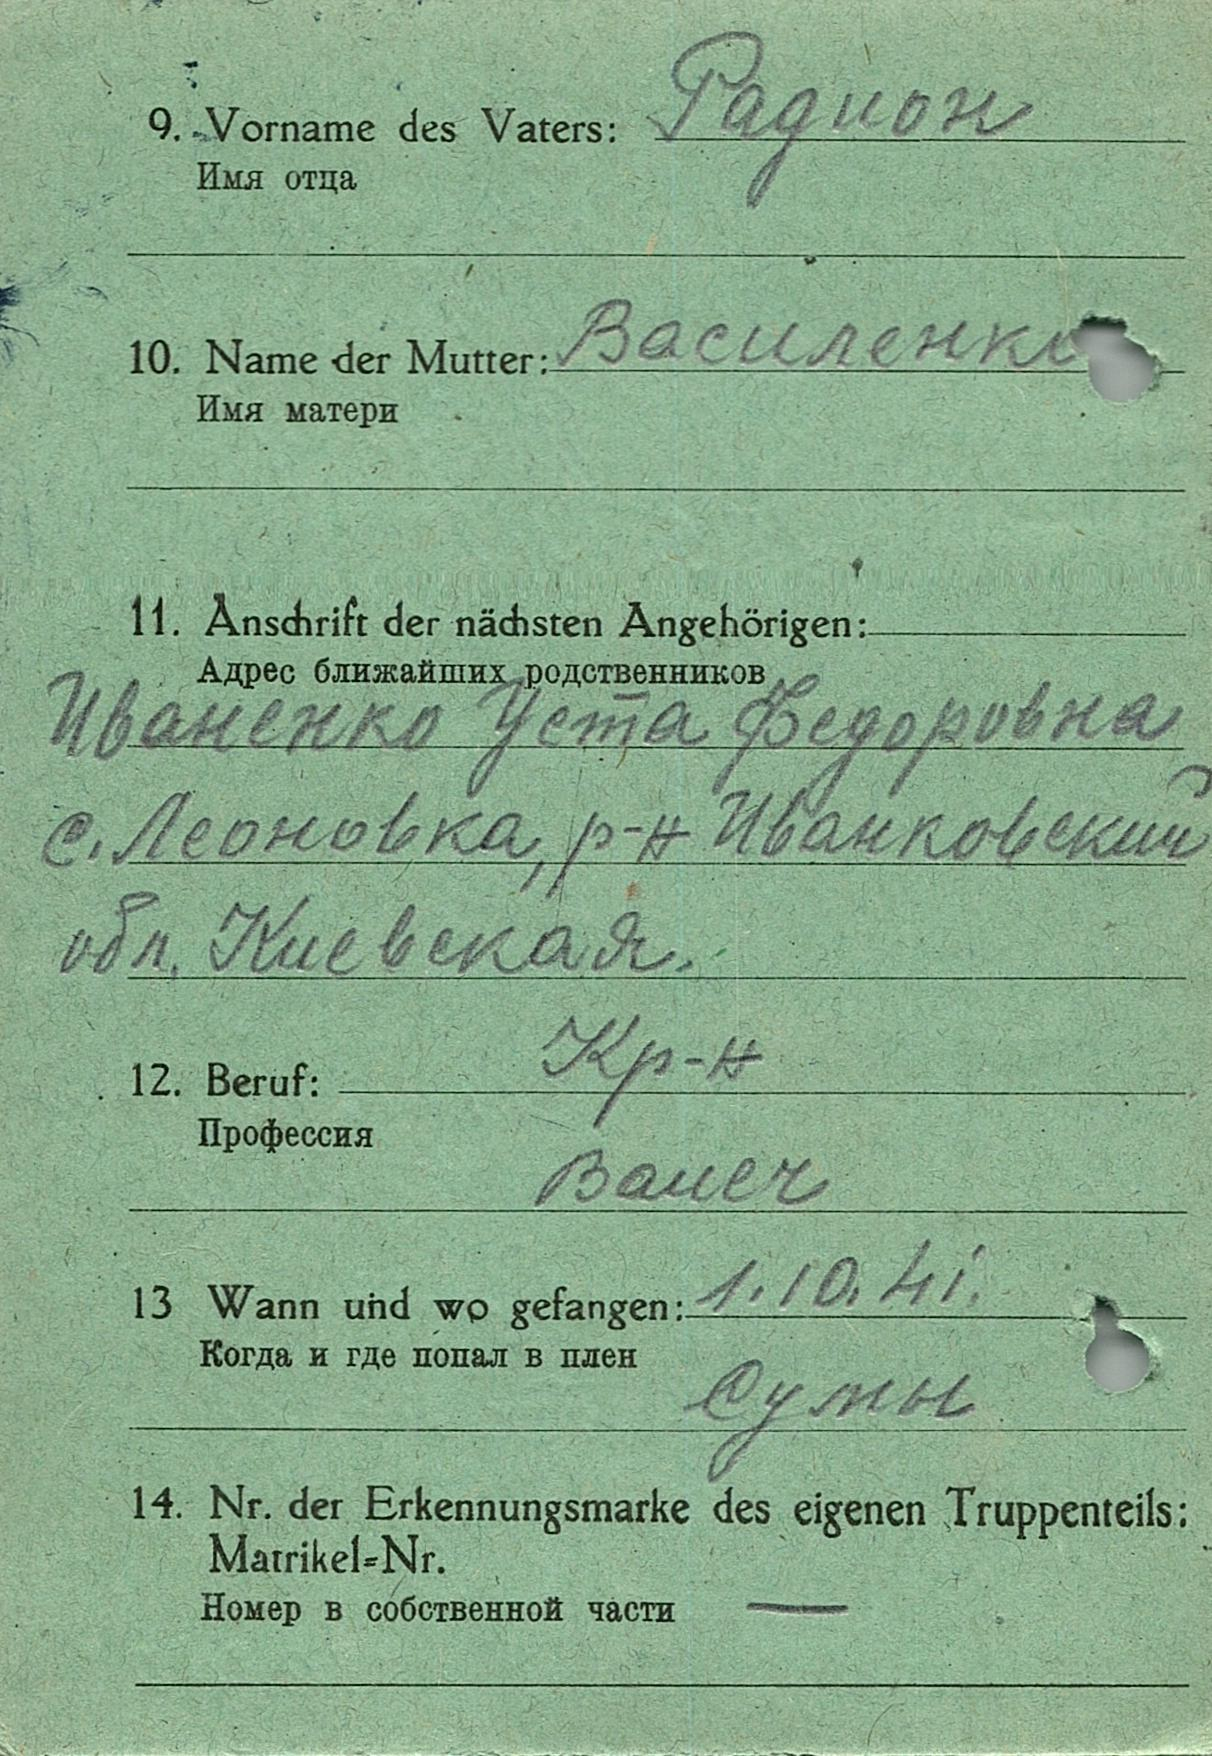 9. Vorname des Vaters: Радион
Имя отца
10. Name der Mutter: Василенко
Имя матери
11. Anschrift der nächsten Angehörigen:
Адрес ближайших родственников
Иваненко Уста Федоровна
с. Леоновка, р-н Иванковский
обл. Киевская.
12. Beruf: Кр-н
Профессия
13 Wann und wo gefangen: 1.10.41.
Когда и где попал в плен
Сумы
14. Nr. der Erkennungsmarke des eigenen Truppenteils:
Matrikel=Nr.
Номер в собственной части —